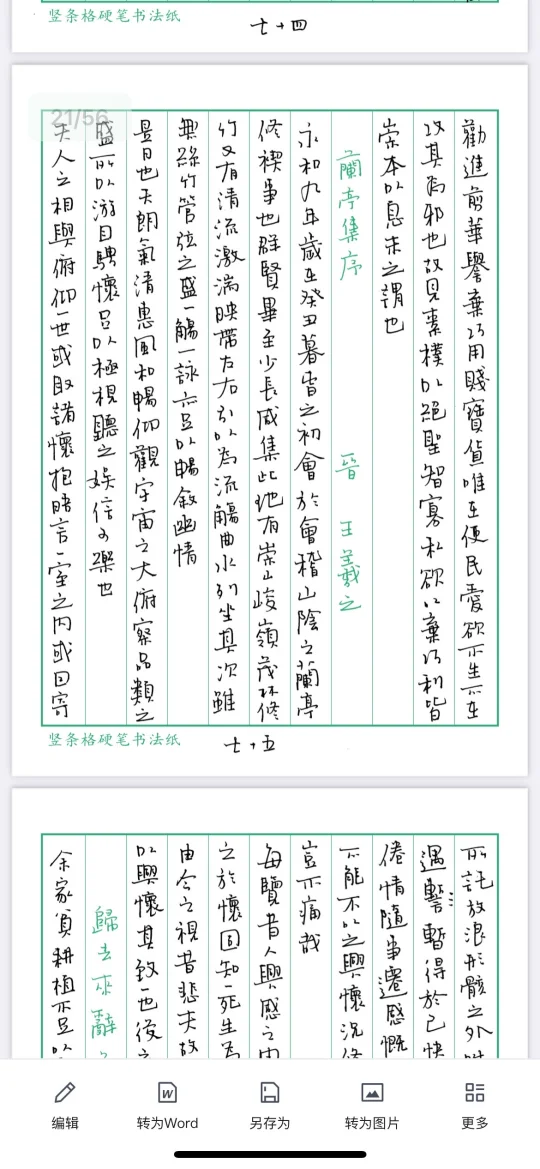 竖条格硬笔书法纸
七十四
21/56
勸進前華譽棄巧用賤寶貨唯在使民愛欲不生不在
攻其為邪也故見素樸以絕聖智寡私欲以棄巧利皆
崇本以息末之謂也
蘭亭集序 晉 王羲之
永和九年歲在癸丑暮春之初會於會稽山陰之蘭亭
修禊事也群賢畢至少長咸集此地有崇山峻嶺茂林修
竹又有清流激湍映帶左右引以為流觴曲水列坐其次雖
無絲竹管弦之盛一觴一詠亦足以暢敘幽情
是日也天朗氣清惠風和暢仰觀宇宙之大俯察品類之
盛所以游目騁懷足以極視聽之娛信可樂也
夫人之相與俯仰一世或取諸懷抱晤言一室之內或因寄
竖条格硬笔书法纸
七十五
所託放浪形骸之外
遇暫得於己快
倦情隨事遷感慨
不能不以之興懷況修
豈不痛哉
每覽昔人興感之由
之於懷固知一死生為
由今之視昔悲夫故
以興懷其致一也後之
歸去來辭
余家貧耕植不足以
编辑
转为Word
另存为
转为图片
更多